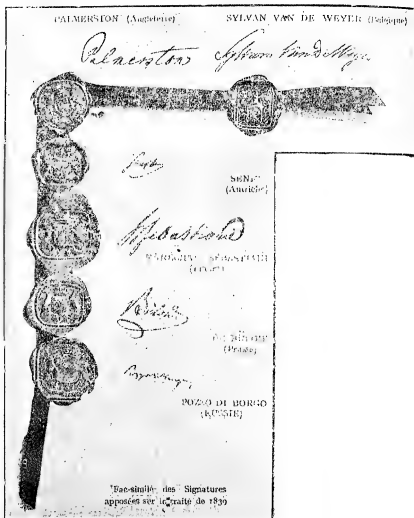 PALMERSTON (Angleterre) SYLVAN VAN DE WEYER (Belgique)
Palmerston Sylvan Van de Weyer
SENFT
(Autriche)
Sebastiani
SEBASTIANI
BÜLOW
(Prusse)
POZZO DI BORGO
(RUSSIE)
Fac-similé des Signatures
apposées sur le traité de 1839